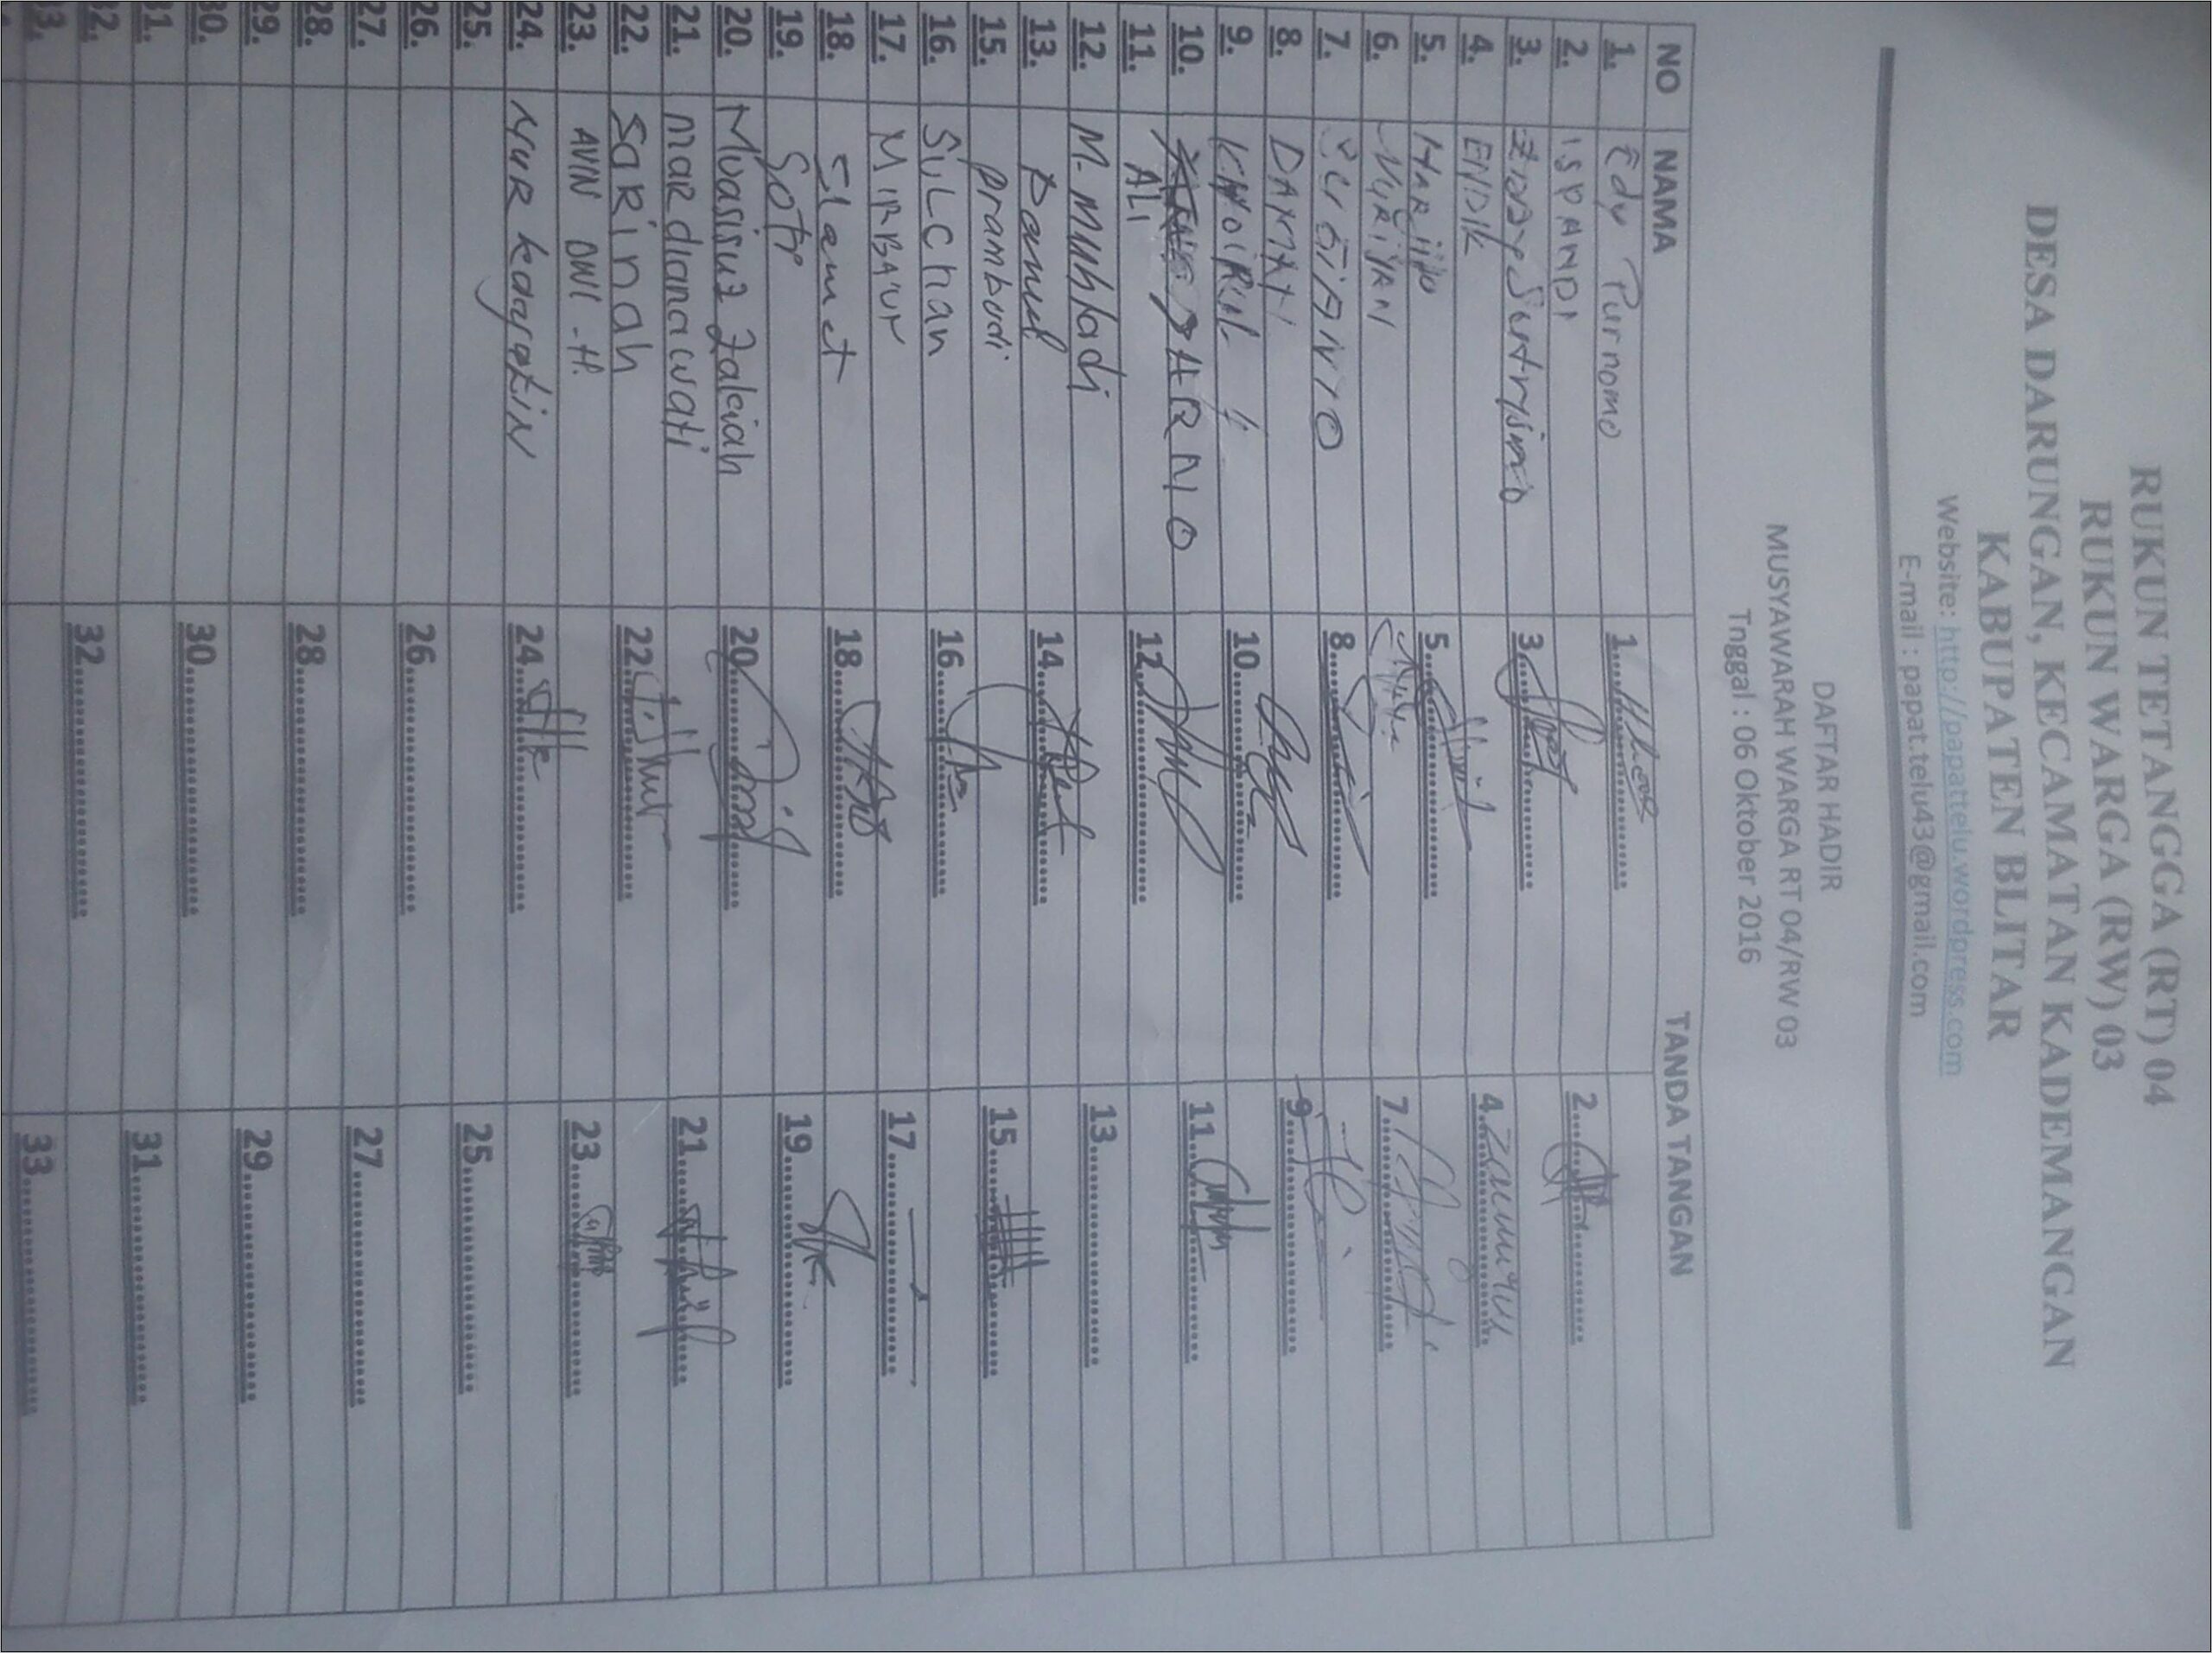 RUKUN TETANGGA (RT) 04
RUKUN WARGA (RW) 03
DESA DARUNGAN, KECAMATAN KADEMANGAN
KABUPATEN BLITAR
Website: http://papattelu.wordpress.com
E-mail : papat.telu43@gmail.com
DAFTAR HADIR
MUSYAWARAH WARGA RT 04/RW 03
Tnggal : 06 Oktober 2016
NO NAMA TANDA TANGAN
1. Edy Purnomo 1
2. ISPANDI 2
3. Sutrisno 3
4. ENDIK 4
5. HARjijo 5
6. MURIYAN
7. 7
8. DAMAXI 8
9. KHOIRUL 9
10. 10
11. ALI 11
12. M. MUHHadi 12
13. Panud 13
15. prambudi 14 15
16. SiLChan 16
17. MIRBAUR 17
18. Slamet 18
19. 19
20. Muasisuz Zakiah 20
21. mardianawati 21
22. SaRinah 22
23. AVIN DWI .H. 23
24. NUR kdayatiN 24
25. 25
26. 26
27. 27
28. 28
29. 29
30. 30
31. 31
32. 32
33. 33